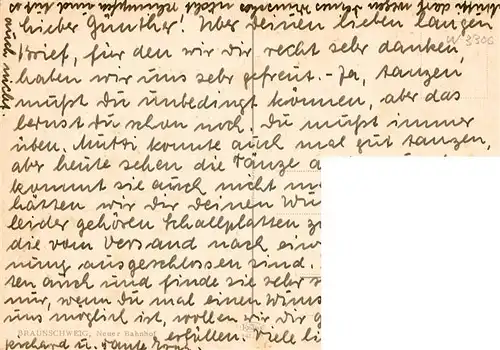 Lieber Günther! Über Deinen lieben langen
Brief, für den wir Dir recht sehr danken,
haben wir uns sehr gefreut. - Ja, tanzen
mußt Du unbedingt können, aber das
lernst Du schon noch. Du mußt immer
üben. Mutti konnte auch mal gut tanzen,
aber heute sehen die Tänze a
kommt sie auch nicht m
hätten wir Dir Deinen Wu
leider gehören Schallplatten z
die vom Versand nach ein
nung ausgeschlossen sind.
ten auch und finde sie sehr s
nur, wenn Du mal einen Wuns
uns möglich ist, wollen wir Dir g
erfüllen. Viele li
BRAUNSCHWEIG, Neuer Bahnhof
Richard u. Tante
auch nicht.
W 3306